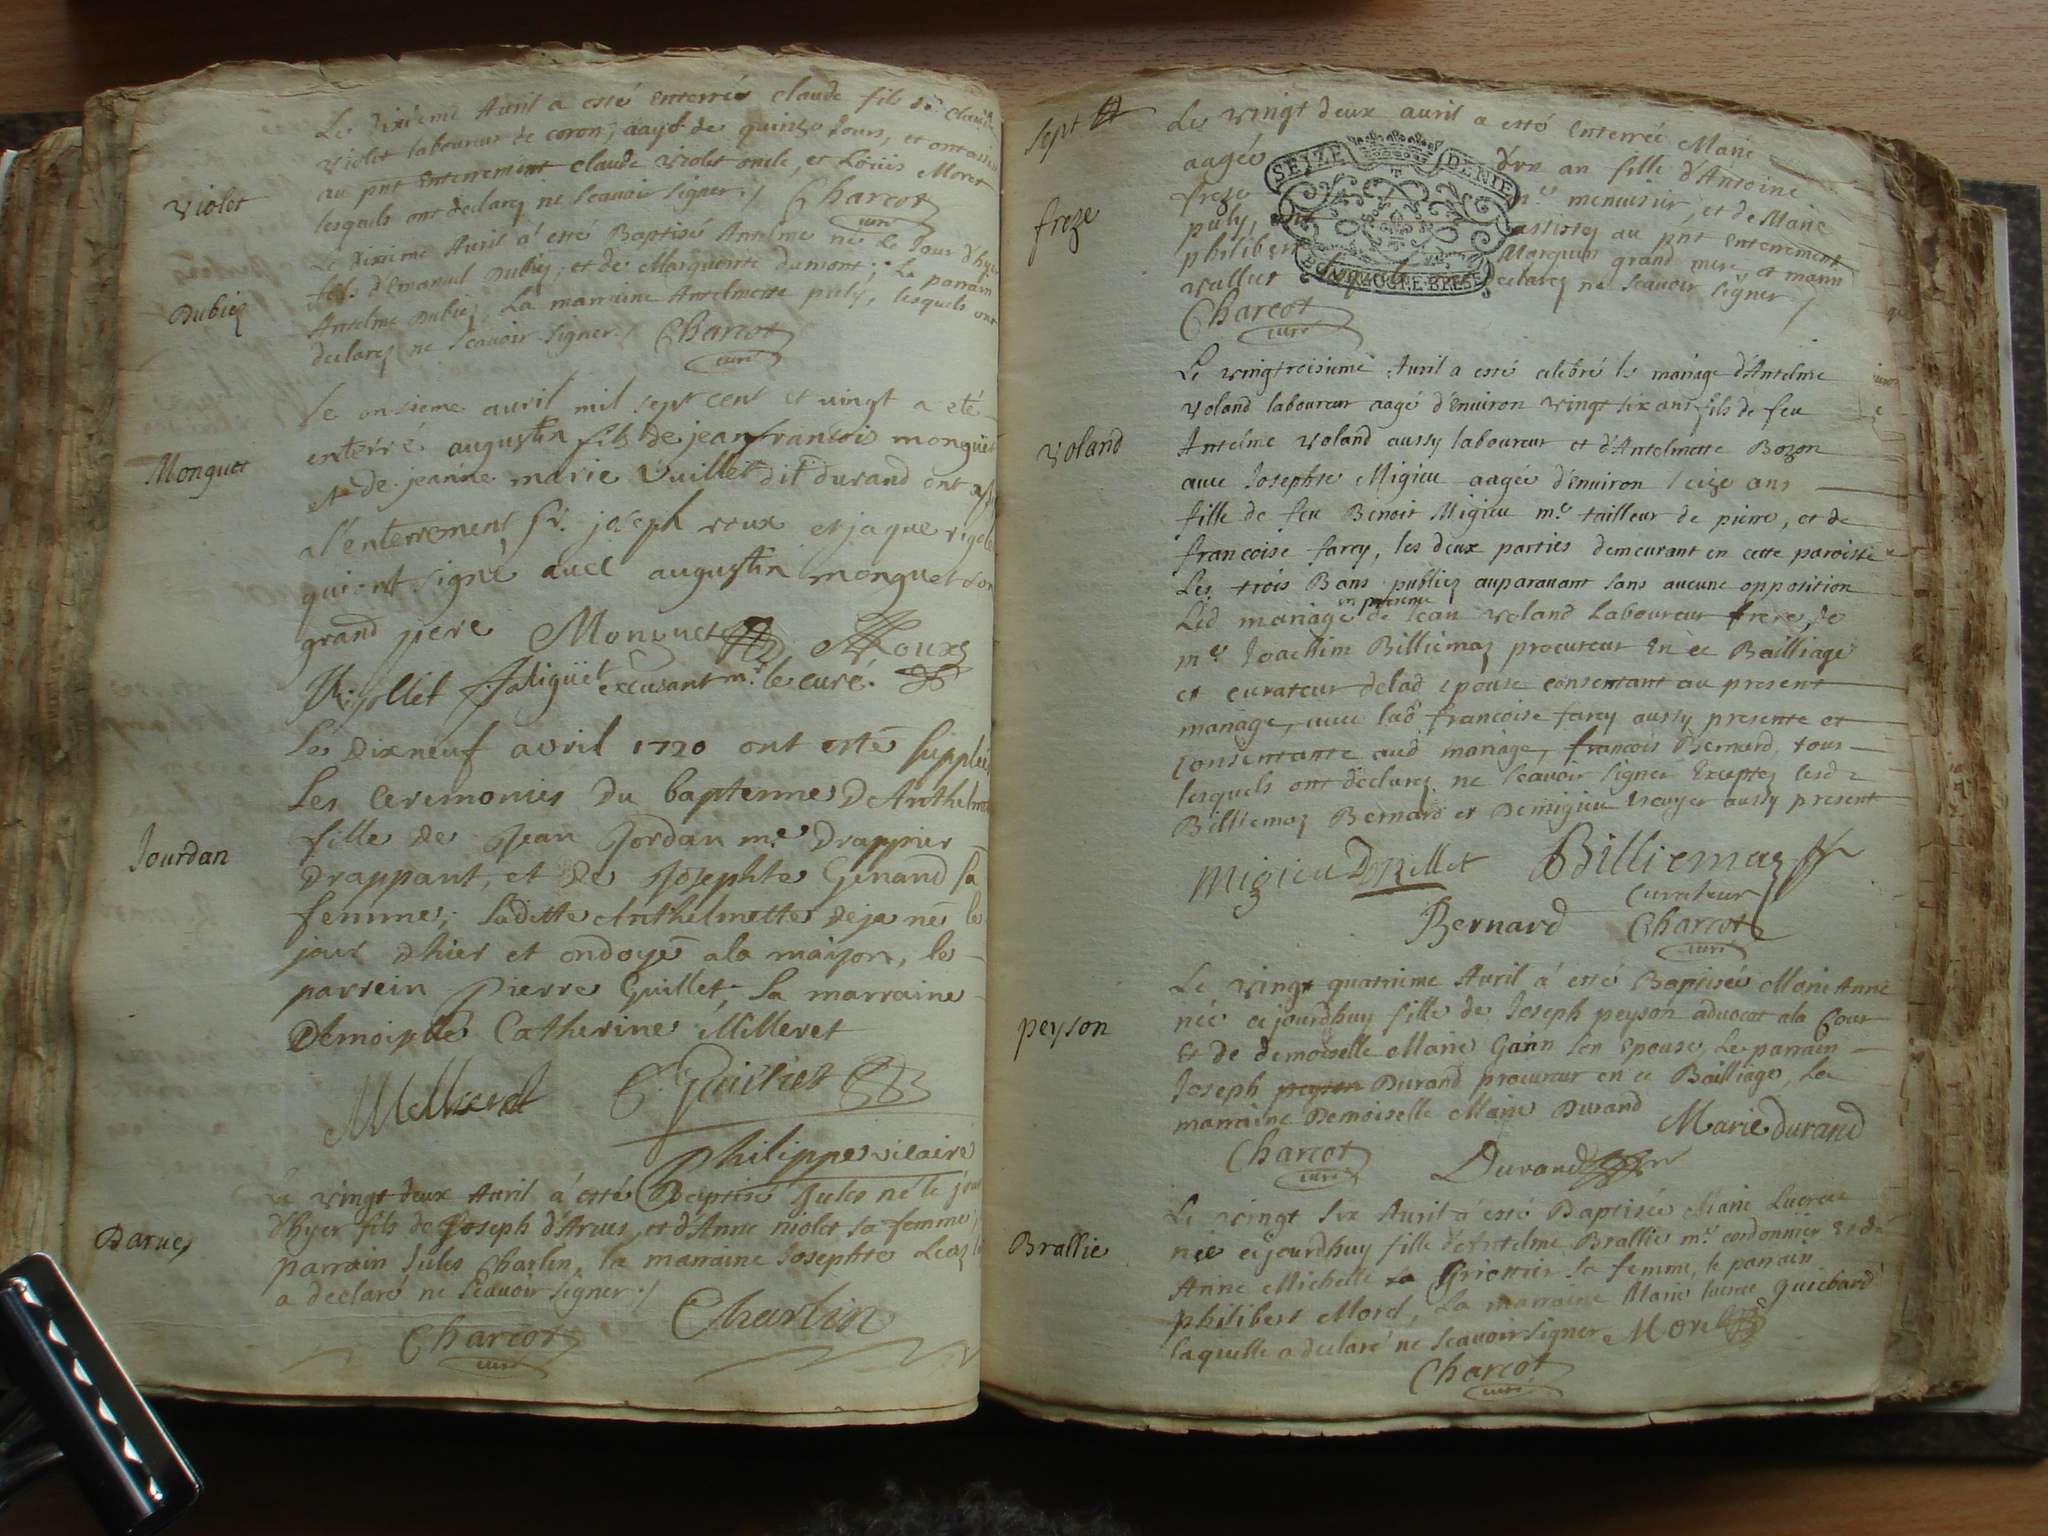 Violet
Le dixieme Avril a esté Enterrés claude fils de Claude
Violet laboureur de coron, aagé de quinze Jours, et ont assisté
au pnt Enterrement claude Violet oncle, et Loüis Moret
lesquels ont declarez ne Scavoir signer./ Charcot
curé
Dubiez
Le dixieme Avril a esté Baptisé Antelme né Le Jour d'hyer
fils d'Emanuel Dubiez, et de Marguerite dumont; Le parrain
Antelme Dubiez, La marraine Antelmette puly, lesquels ont
declarez ne Scavoir signer./ Charcot
curé
Monguet
le onsieme avril mil sept cent et vingt a eté
enterré augustin fils de jean francois monguet
et de jeanne marie Vuillet dit durand ont
a l'enterrement Sr. joseph roux et jaque
qui ont signé avec augustin monguet son
grand pere Monguet Roux
excusant mr. le curé.
Jourdan
Le dixneuf avril 1720 ont esté supplées
Les Ceremonies du baptesme D'Anthelmette
fille de Jean Jordan me. Drappier
Drappant, et de Josephte Genand sa
femme; ladette Anthelmette deja né le
jour d'hier et ondoyé a la maison, le
parrein Pierre Guillet, la marraine
Demoiselle Catherine Milleret
Milleret Guilliet
Philippe vicaire
Daruez
Le vingt deux Avril a esté Baptisé Jules né le jour
d'hyer fils de Joseph d'Arves, et d'Anne niolet sa femme
parrain Jules Charlin, la marraine Josephte
a declaré ne Scavoir signer./
Charcot Charlin
curé
sept
freze
Le vingt deux avril a esté Enterrée Marie
aagée d'un an fille d'Antoine
freze me. menuisier, et de Marie
puly, ont assistez au pnt Enterrement
philibert grand mere, et
declarez ne Scavoir signer /
SEIZE DENIE
Charcot
curé
Voland
Le vingtroisieme Avril a esté celebré le mariage d'Antelme
Voland laboureur aagé d'Environ vingt six ans fils de feu
Antelme Voland aussy laboureur et d'Antelmette Bozon
avec Josephte Migieu aagée d'Environ seize ans
fille de feu Benoit Migieu me. tailleur de pierre, et de
francoise farcy, les deux parties demeurant en cette paroisse
Les trois Bans publiez auparavant sans aucune opposition
Led mariage en presence de Jean Voland Laboureur frere, de
me. Joachim Billiemaz procureur En ce Bailliage
et curateur delad epouse consentant au present
mariage, avec lad francoise farcy aussy presente et
consentante aud mariage, francois Bernard, tous
lesquels ont declarez ne Scavoir signer Exceptez lesd
Billiemaz Bernard et Demigieu Escuyer aussy present
Migieu Billiemaz
curateur
Bernard Charcot
curé
peyson
Le vingt quatrieme Avril a esté Baptisée Marie Anne
née cejourdhuy fille de Joseph peyson advocat ala Cour
Et de demoiselle Marie Garin son Epouse, Le parrain
Joseph peyson Durand procureur en ce Bailliage, La
marraine Demoiselle Marie Durand Marie durand
Charcot Durand
curé
Brallie
Le vingt six Avril a esté Baptisée Marie Lucrece
née cejourdhuy fille d'Antelme Brallie me. cordonnier et de
Anne Michelle sa femme, le parrain
philibert Morel, La marraine Marie lucrece Guichard
laquelle a declaré ne Scavoir signer Morel
Charcot
curé